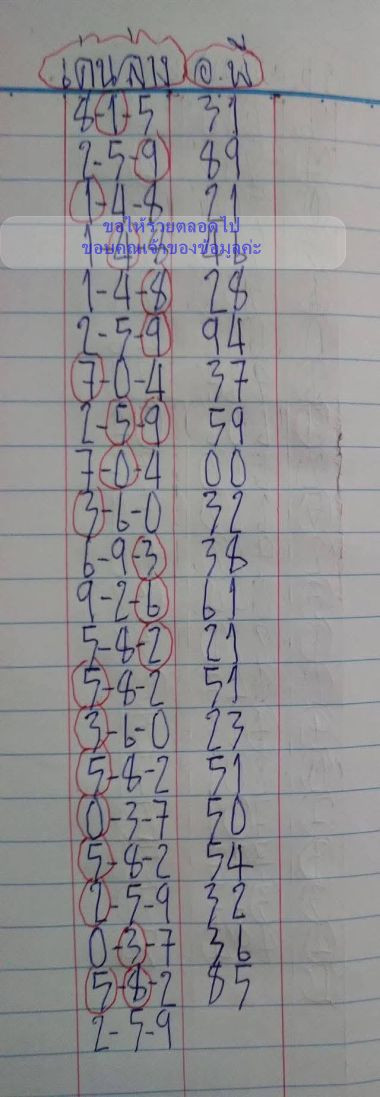 เด่นล่าง อ.พี
8-1-5 31
2-5-9 89
1-4-8 21
ขอให้รวยตลอดไป
ขอบคุณเจ้าของข้อมูลค่ะ
1-4-8 28
2-5-9 94
7-0-4 37
2-5-9 59
7-0-4 00
3-6-0 32
6-9-3 38
9-2-6 61
5-8-2 21
5-8-2 51
3-6-0 23
5-8-2 51
0-3-7 50
5-8-2 54
2-5-9 32
0-3-7 36
5-8-2 85
2-5-9